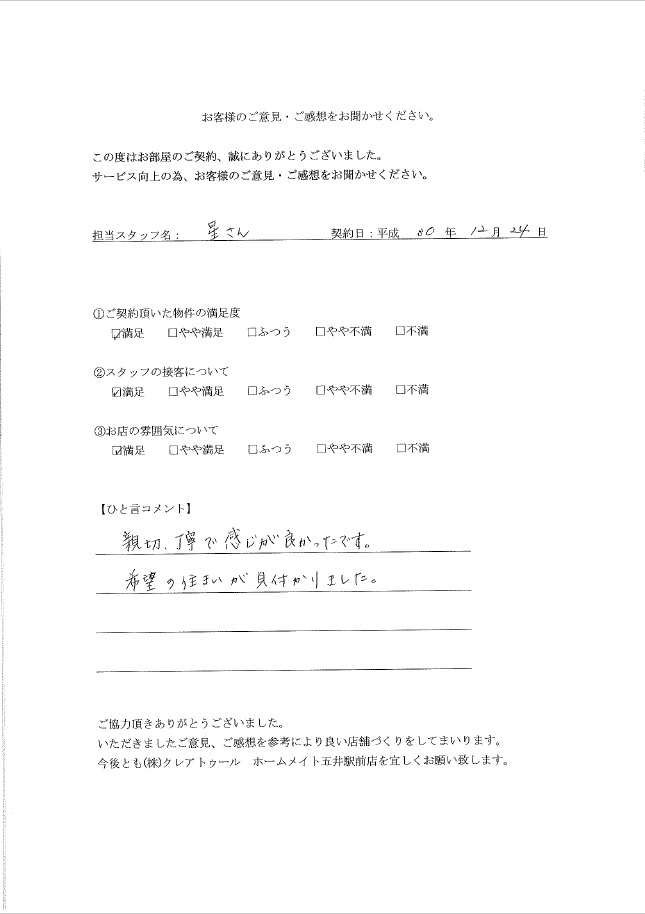 お客様のご意見・ご感想をお聞かせください。
この度はお部屋のご契約、誠にありがとうございました。
サービス向上の為、お客様のご意見・ご感想をお聞かせください。
担当スタッフ名： 星さん 契約日：平成 30 年 12 月 24 日
①ご契約頂いた物件の満足度
☑満足 □やや満足 □ふつう □やや不満 □不満
②スタッフの接客について
☑満足 □やや満足 □ふつう □やや不満 □不満
③お店の雰囲気について
☑満足 □やや満足 □ふつう □やや不満 □不満
【ひと言コメント】
親切、丁寧で感じが良かったです。
希望の住まいが見付かりました。
ご協力頂きありがとうございました。
いただきましたご意見、ご感想を参考により良い店舗づくりをしてまいります。
今後とも(株)クレアトゥール ホームメイト五井駅前店を宜しくお願い致します。